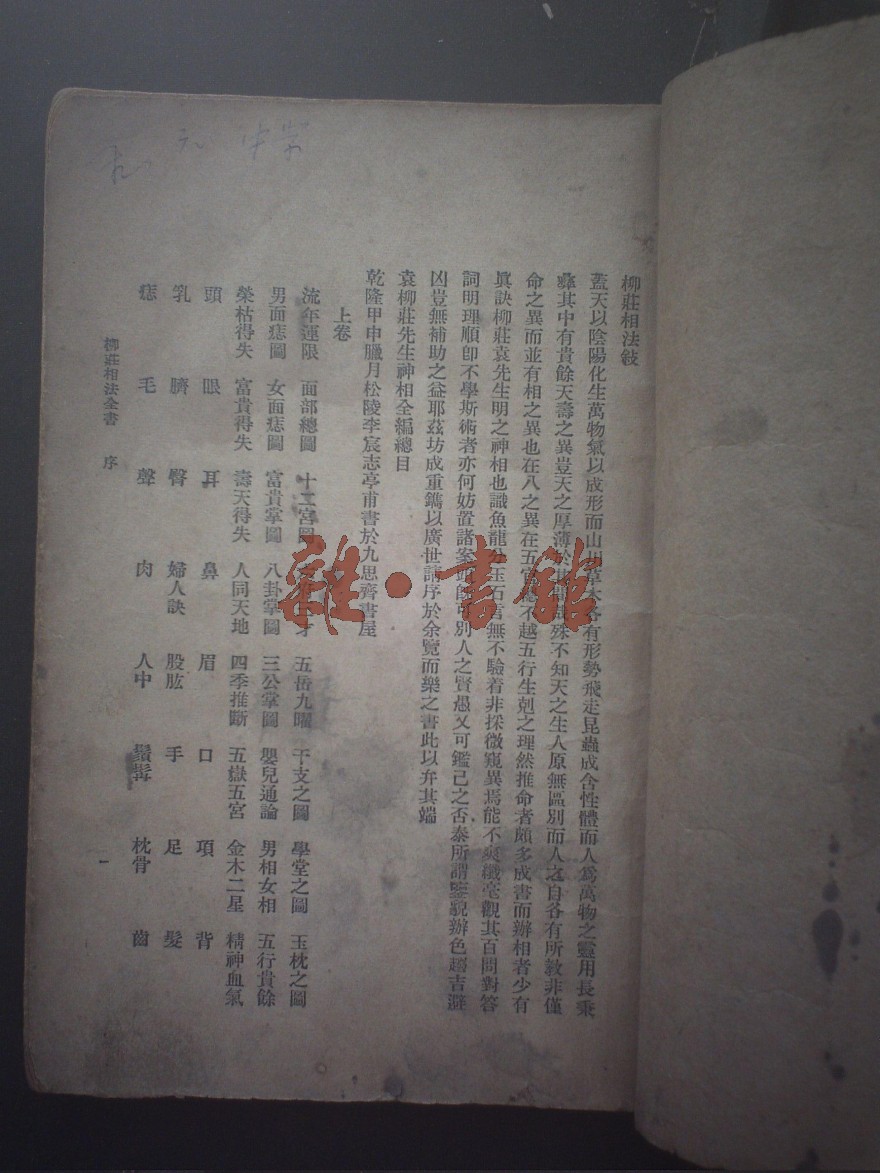 柳莊相法敍
蓋天以陰陽化生萬物氣以成形而山川草木各有形勢飛走昆蟲成含性體而人爲萬物之靈用長秉
彝其中有貴餘天壽之異豈天之厚薄於其殊不知天之生人原無區別而人之自各有所敎非僅
命之異而並有相之異也在八之異在五官不越五行生剋之理然推命者頗多成書而辦相者少有
眞訣柳莊袁先生明之神相也識魚龍玉石言無不驗着非採微窺異焉能不爽纖毫觀其百問對答
詞明理順卽不學斯術者亦何妨置諸案頭卽可別人之賢愚又可鑑己之否泰所謂鑒貌辦色趨吉避
凶豈無補助之益耶茲坊成重鐫以廣世請序於余覽而樂之書此以弁其端
袁柳莊先生神相全編總目
乾隆甲申臘月松陵李宸志亭甫書於九思齊書屋
上卷
流年運限 面部總圖 十二宮圖 才 五岳九曜 干支之圖 學堂之圖 玉枕之圖
男面痣圖 女面痣圖 富貴掌圖 八卦掌圖 三公掌圖 嬰兒通論 男相女相 五行貴餘
榮枯得失 富貴得失 壽天得失 人同天地 四季推斷 五嶽五宮 金木二星 精神血氣
頭 眼 耳 鼻 眉 口 項 背
乳 臍 臀 婦人訣 股肱 手 足 髮
痣 毛 聲 肉 人中 鬚髯 枕骨 齒
柳莊相法全書 序 一
雜·書館